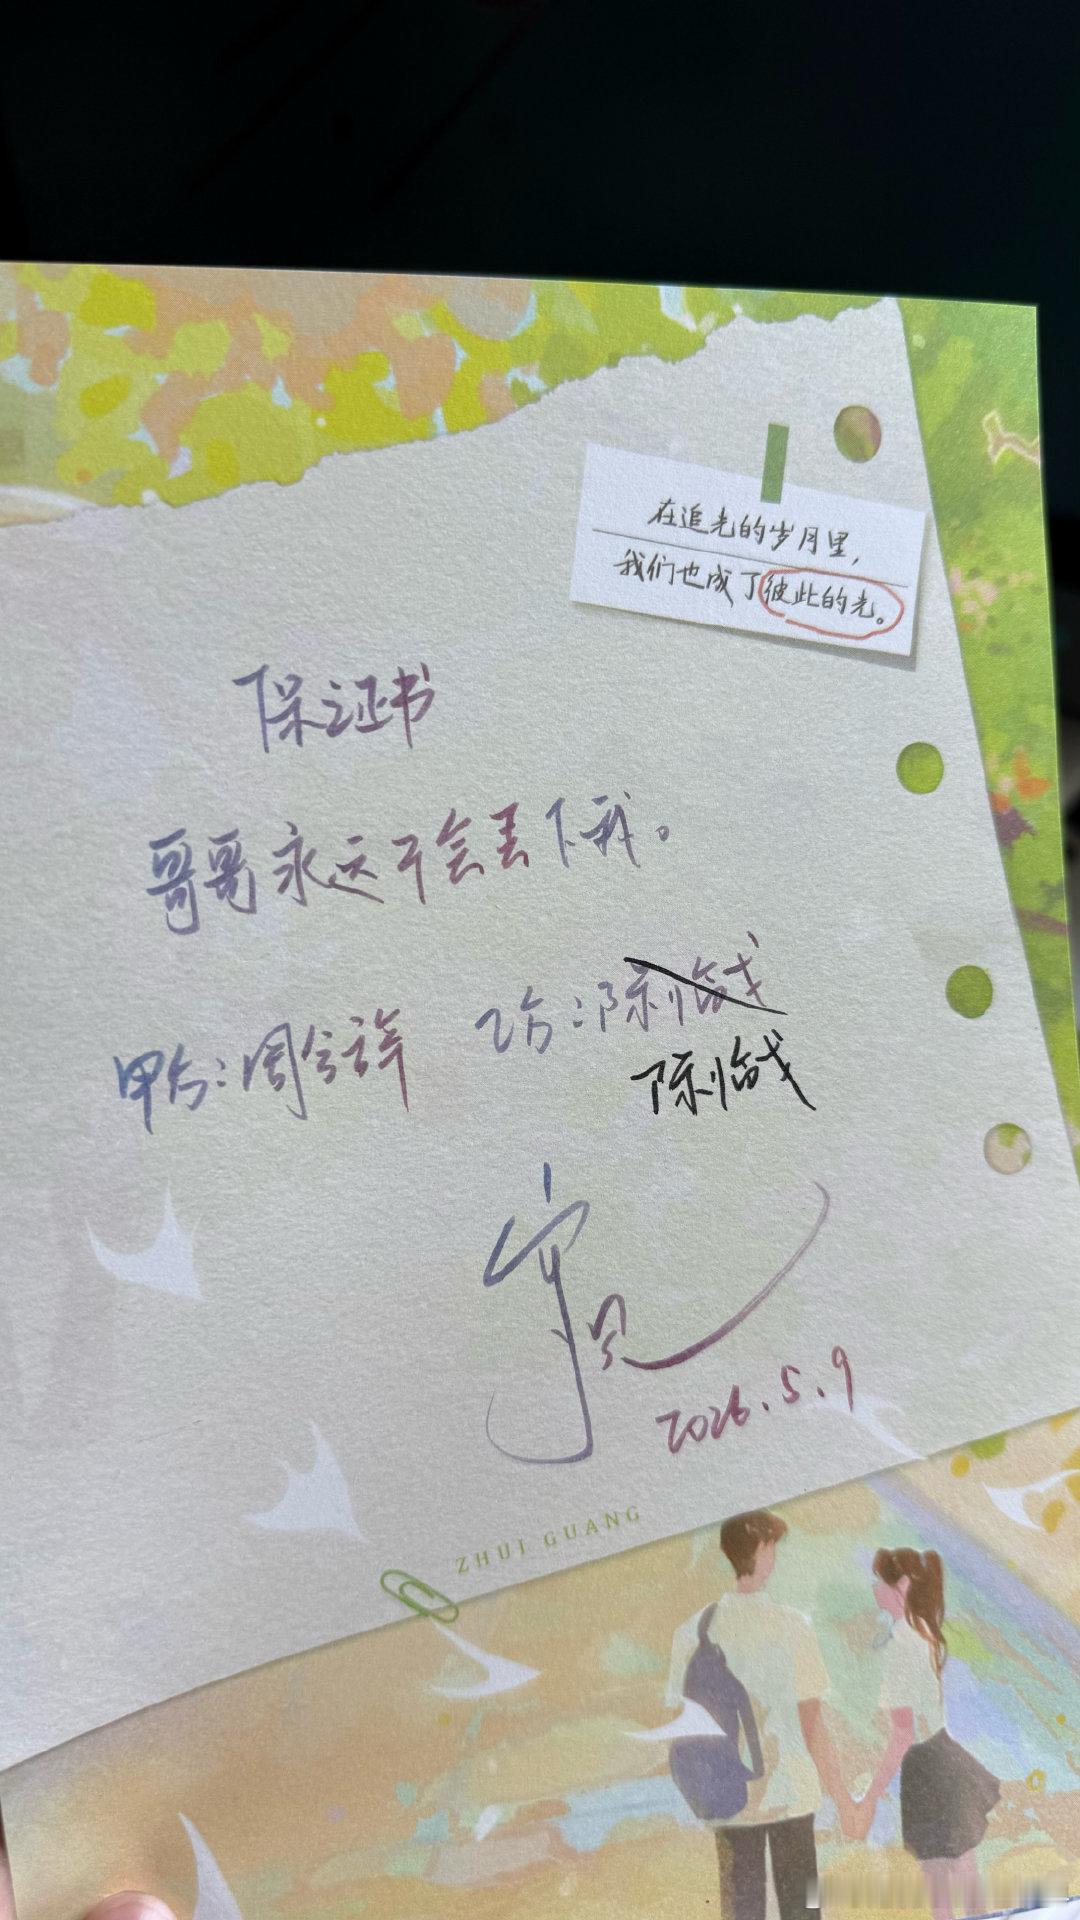 在追光的岁月里，
我们也成了彼此的光。
保证书
哥哥永远不会丢下我。
甲方：周今辞 乙方：陈恰戈
陈恰戈
2026.5.9
ZHUI GUANG